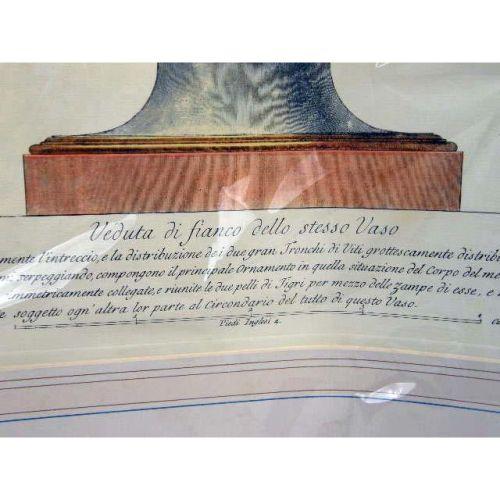 Veduta di fianco dello stesso Vaso
mente l'intreccio, e la distribuzione dei due gran Tronchi di Viti grottescamente distribu
serpeggiando, compongono il principale Ornamento in quella situazione del Corpo del me
immetricamente collegate, e riunite le due pelli di Tigri per mezzo delle zampe di esse, e
e soggetto ogn'altra lor parte al Circondario del tutto di questo Vaso.
2
Piedi Inglesi 4.